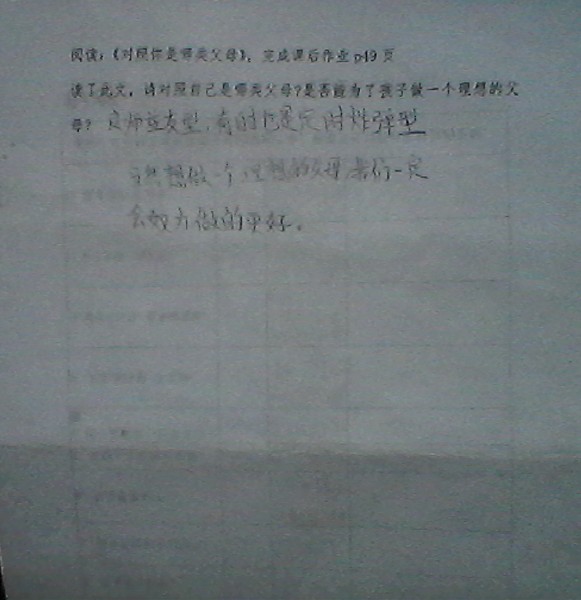 阅读：《对照你是哪类父母》，完成课后作业 p49 页
读了此文，请对照自己是哪类父母？是否能为了孩子做一个理想的父
母？良师益友型，有时也是定时炸弹型
当然想做一个理想的父母，我们一定
会努力做的更好。